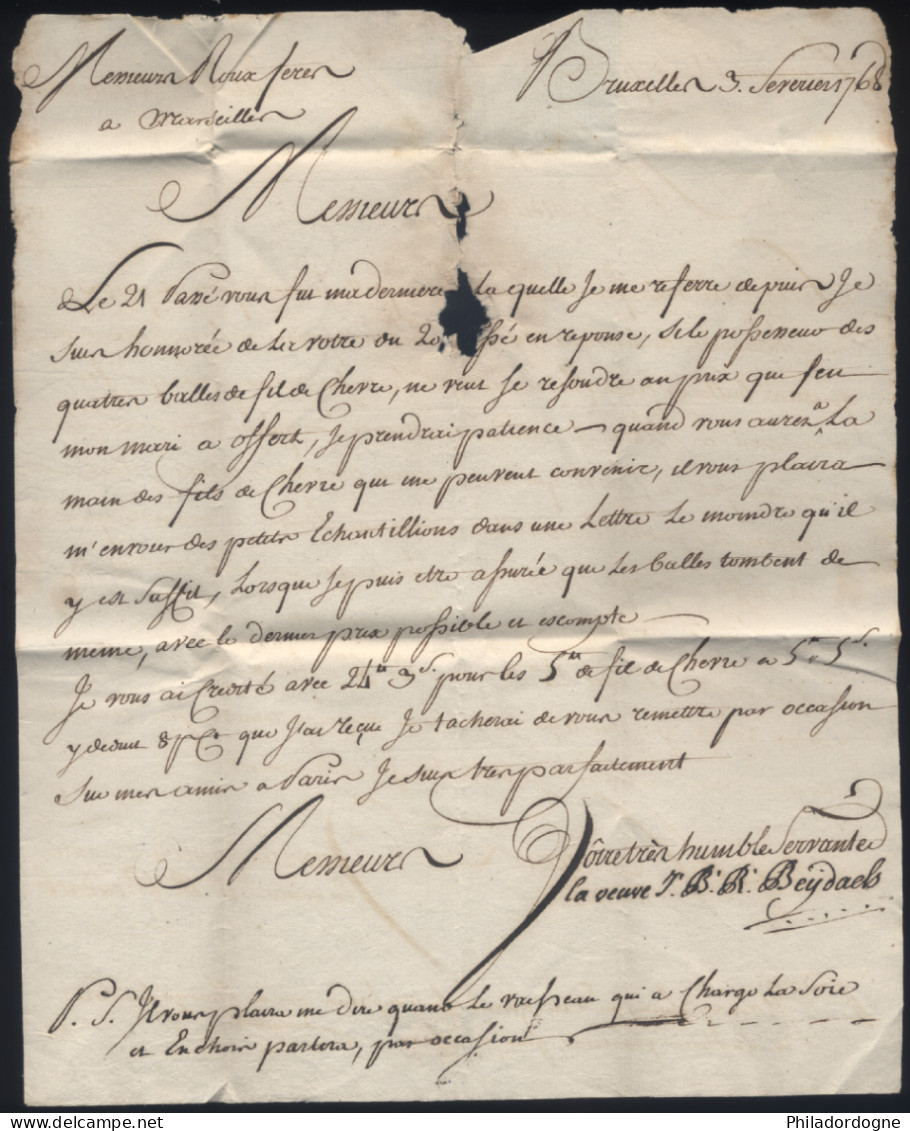 Messieurs Roux freres
Bruxelles 3. Fevrier 1768
a Marseilles
Messieurs
Le 21 Passé vous fut ma derniere a la quelle Je me referre depuis Je
suis honnorée de la votre du 20 passé en reponse, si le possesseur des
quattres balles de fil de Chevre, ne veut se resoudre au prix que feu
mon mari a offert, je prendrai patience quand vous aurez a La
main des fils de Chevre qui me peuvent convenir, il vous plaira
m'envoier des petits Echantillions dans une Lettre Le moindre qu'il
y est suffit, Lorsque je puis etre assurée que Les balles tombent de
meme, avec le dernier prix possible et escompte
Je vous ai Credité avec 24tt 3s. pour les 5tt de fil de Chevre a 5tt 5s.
y deduit 8 pCt que J'ai reçue Je tacherai de vous remettre par occasion
sur mes amis a Paris Je suis tres parfaitement
Messieurs
Vôtre très humble Servante
la veuve J. B. R. Beÿdaels
P. S. Il vous plaira me dire quand Le vaisseau qui a Chargé La Soie
et Enchois partira, par occasion
Philadordogne